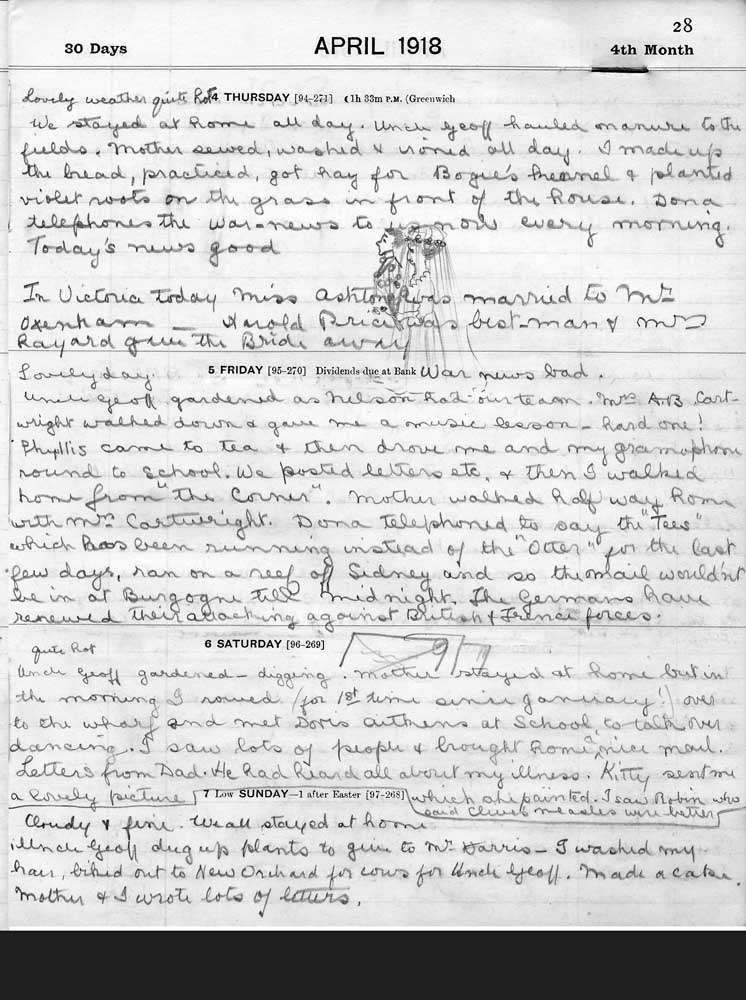 28
30 Days APRIL 1918 4th Month
Lovely weather quite hot 4 THURSDAY [94-271] ☾1h 33m P.M. (Greenwich
We stayed at home all day. Uncle Geoff hauled manure to the
fields. Mother sewed, washed & ironed all day. I made up
the bread, practiced, got hay for Bogie's kennel & planted
violet roots on the grass in front of the house. Dona
telephones the war-news to us now every morning.
Today's news good
In Victoria today Miss Ashton was married to Mr
Oxenham — Harold Price was best-man & Mrs
Rayard gave the Bride away
Lovely day. 5 FRIDAY [95-270] Dividends due at Bank War news bad.
Uncle Geoff gardened as Nelson had our team. Mrs A.B. Cart-
wright walked down & gave me a music lesson - hard one!
Phyllis came to tea & then drove me and my gramophone
round to School. We posted letters etc, & then I walked
home from "the Corner". Mother walked half way home
with Mrs Cartwright. Dona telephoned to say the "Tees"
which has been running instead of the "Otter" for the last
few days, ran on a reef off Sidney and so the mail wouldn't
be in at Burgoyne till midnight. The Germans have
renewed their attacking against British & French forces.
quite hot 6 SATURDAY [96-269]
Uncle Geoff gardened - digging. Mother stayed at home but in
the morning I rowed (for 1st time since January!) over
to the wharf and met Doris Aitkens at School, to talk over
dancing. I saw lots of people & brought home nice mail.
Letters from Dad. He had heard all about my illness. Kitty sent me
a lovely picture which she painted. I saw Robin who
said Clive's measles were better
7 Low SUNDAY—1 after Easter [97-268]
Cloudy & fine. We all stayed at home
Uncle Geoff dug up plants to give to Mr Harris - I washed my
hair, biked out to New Orchard for cows for Uncle Geoff. Made a cake.
Mother & I wrote lots of letters.